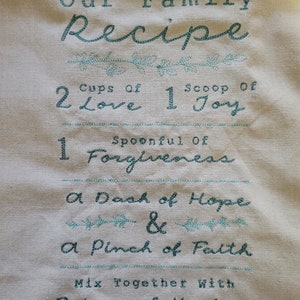 Our Family
Recipe
2 Cups Of Love 1 Scoop Of Joy
1 Spoonful Of
Forgiveness
A Dash of Hope
&
A Pinch of Faith
Mix Together With